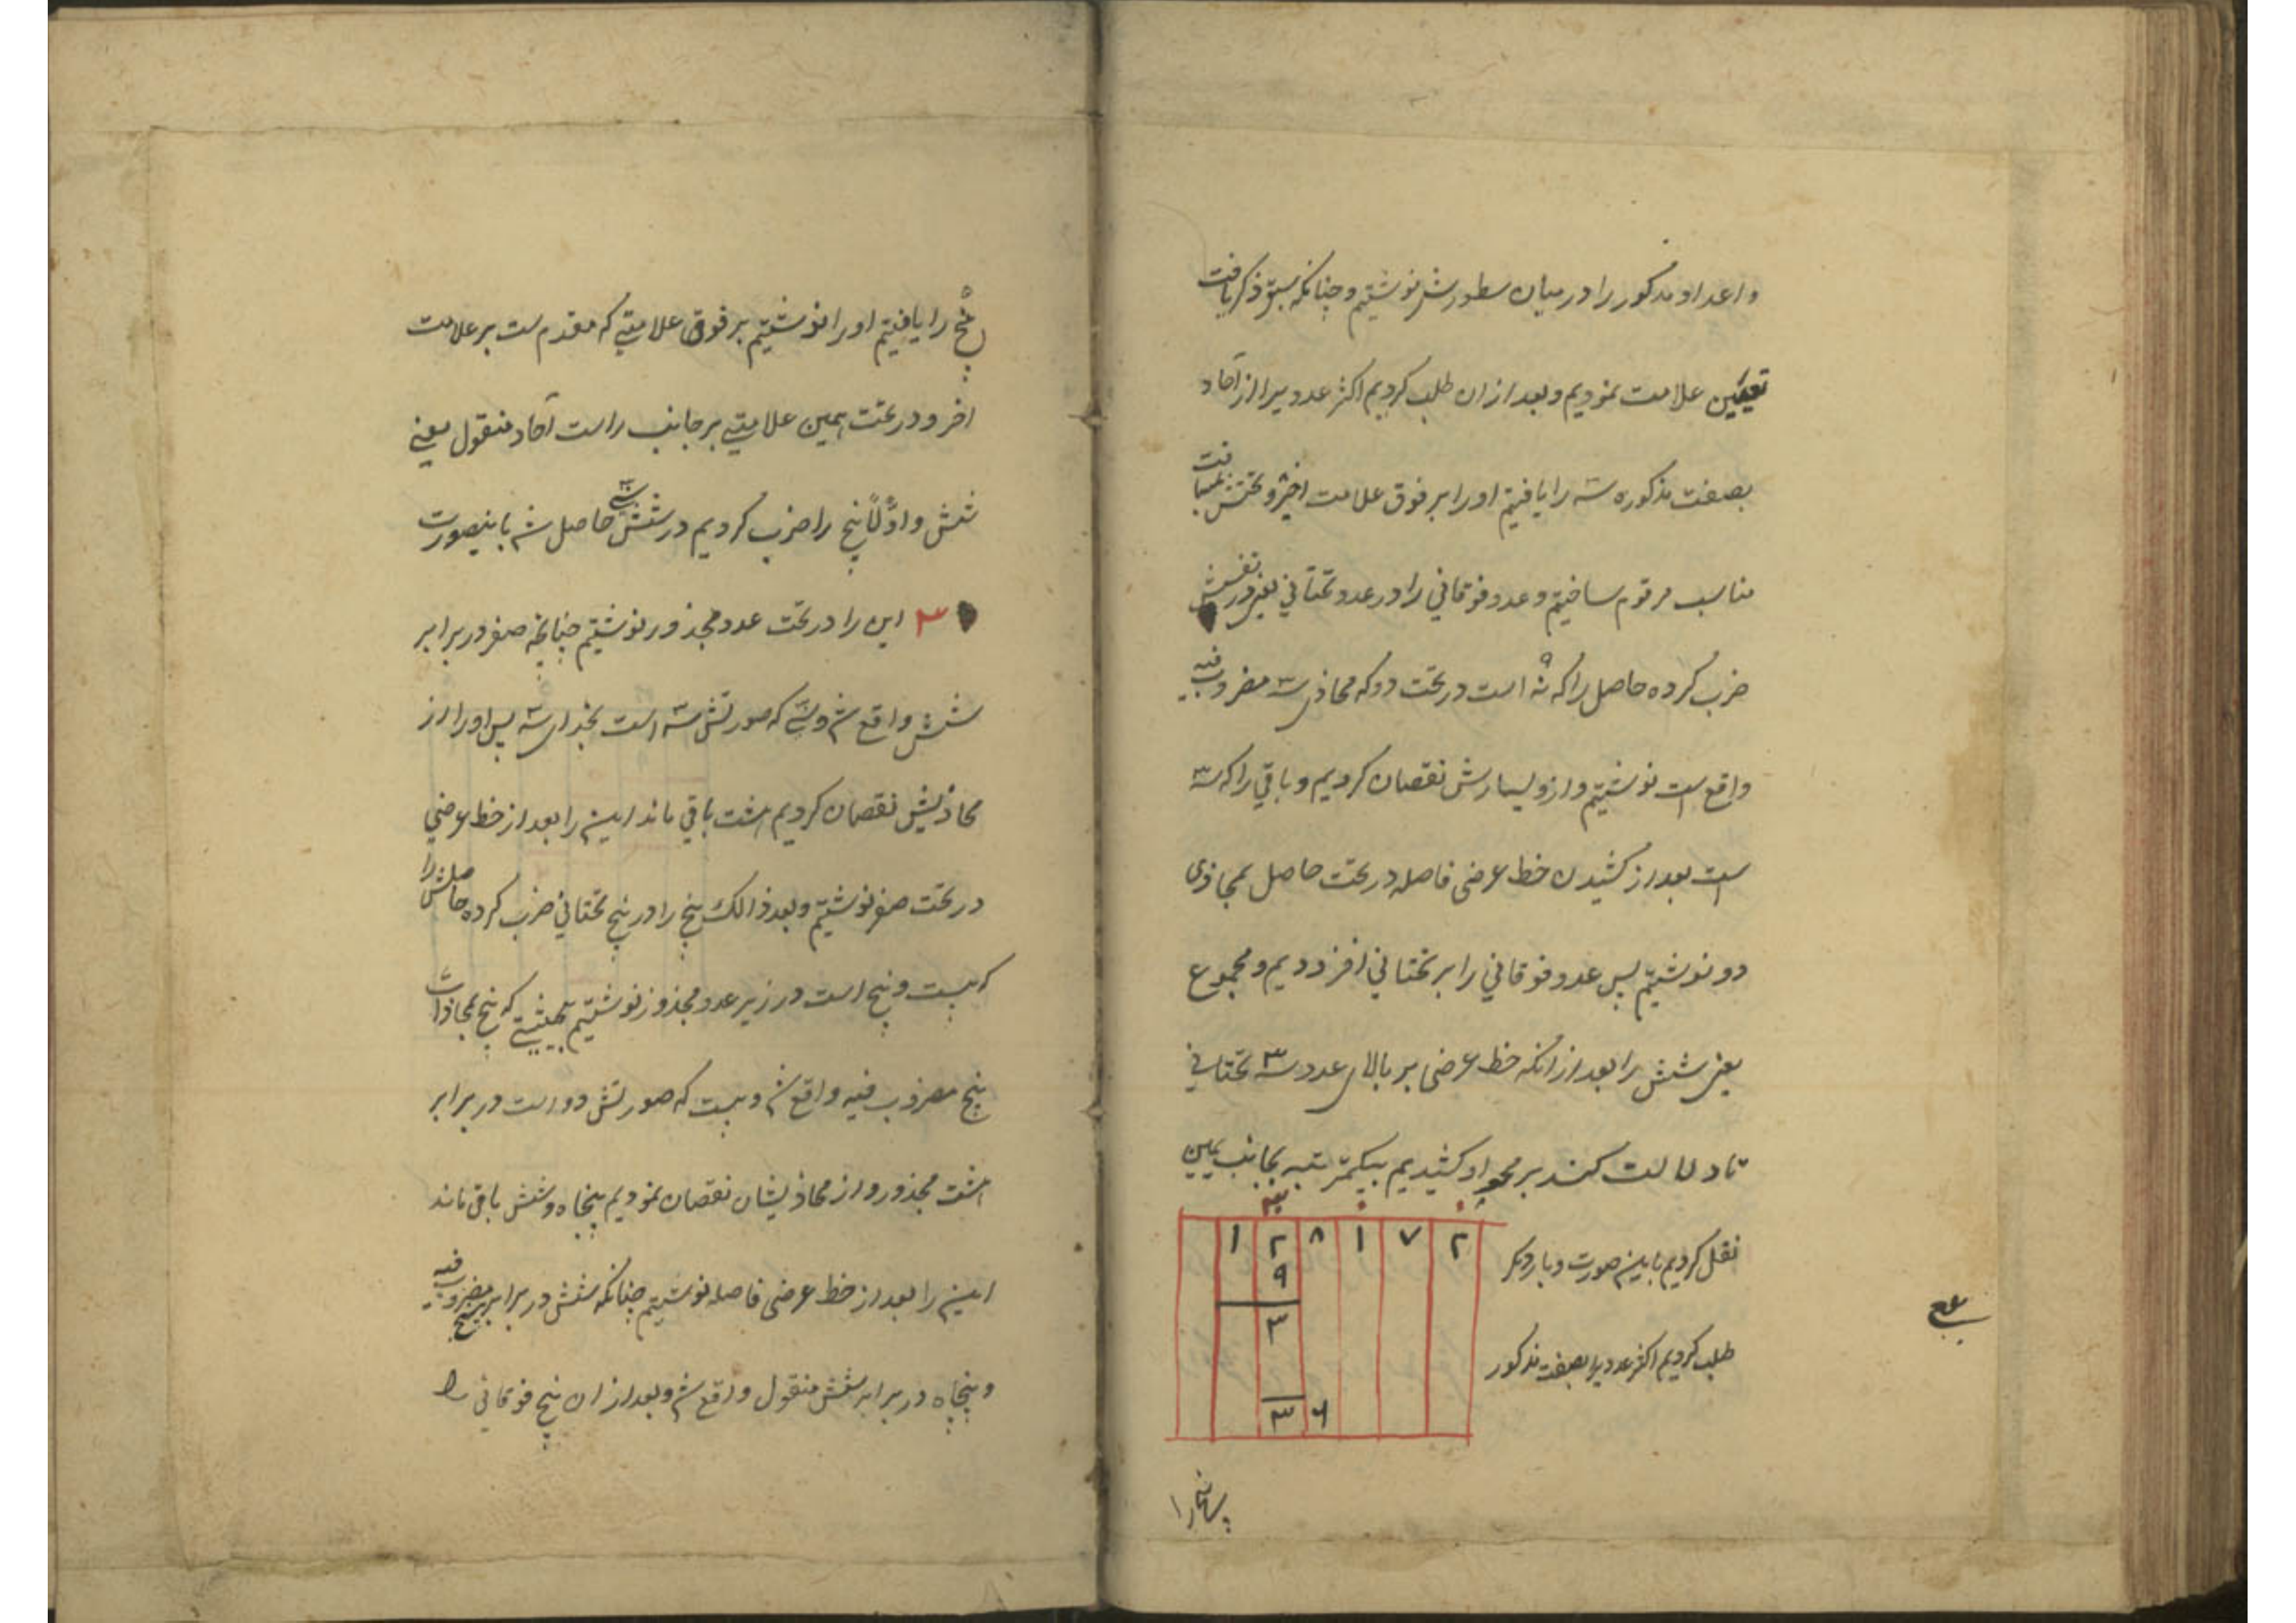 واعداد مذکور را در میان سطورش نوشتیم و چنانکه سبق ذکر یافت
تعیین علامت نمودیم و بعد ازان طلب کردیم اکثر عددیرا از آحاد
بصفت مذکوره سه را یافتیم اورا بر فوق علامت اخیر و تحتش بمسافت
مناسب مرقوم ساختیم و عدد فوقانی را در عدد تحتانی یعنی در نفسش
ضرب کرده حاصل را که نه است در تحت دو که محاذی سه مضروب فیه
واقع است نوشتیم و ازو یسارش نقصان کردیم و باقی را که سه
است بعد از کشیدن خط عرضی فاصله در تحت حاصل بمحاذی
دو نوشتیم پس عدد فوقانی را بر تحتانی افزودیم و مجموع
یعنی شش را بعد از آنکه خط عرضی بر بالای عدد سه تحتانی
تا دلالت کند بر محو او کشیدیم بیکمرتبه بجانب یمین
نقل کردیم باین صورت و بار دیگر
طلب کردیم اکثر عددیرا بصفت مذکور
۳
۱ ۲ ۸ ۱ ۷ ۲
۹
۳
۳ ۶
پنج را
پنج را یافتیم اورا نوشتیم بر فوق علامتی که مقدم ست بر علامت
اخر و در تحت همین علامتی بر جانب راست آحاد منقول یعنی
شش و اوّلاً پنج را ضرب کردیم در شش سی حاصل شد باینصورت
۳۰ این را در تحت عدد مجذور نوشتیم چنانچه صفر در برابر
شش واقع شد و سی که صورتش سه است بحذای سه پس اورا از
محاذیش نقصان کردیم هشت باقی ماند این را بعد از خط عرضی
در تحت صفر نوشتیم و بعد ذالک پنج را در پنج تحتانی ضرب کرده حاصلش را
که بیست و پنج است در زیر عدد مجذور نوشتیم بحیثیتی که پنج بمحاذات
پنج مضروب فیه واقع شد و بیست که صورتش دو است در برابر
هشت مجذور و از محاذیشان نقصان نمودیم پنجاه و شش باقی ماند
این را بعد از خط عرضی فاصله نوشتیم چنانکه شش در برابر پنج مضروب فیه
و پنجاه در برابر شش منقول واقع شد و بعد ازان پنج فوقانی را